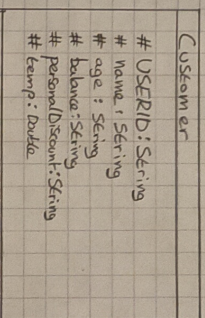 Customer
# USERID: String
# name: String
# age: String
# balance: String
# personalDiscount: String
# temp: Double